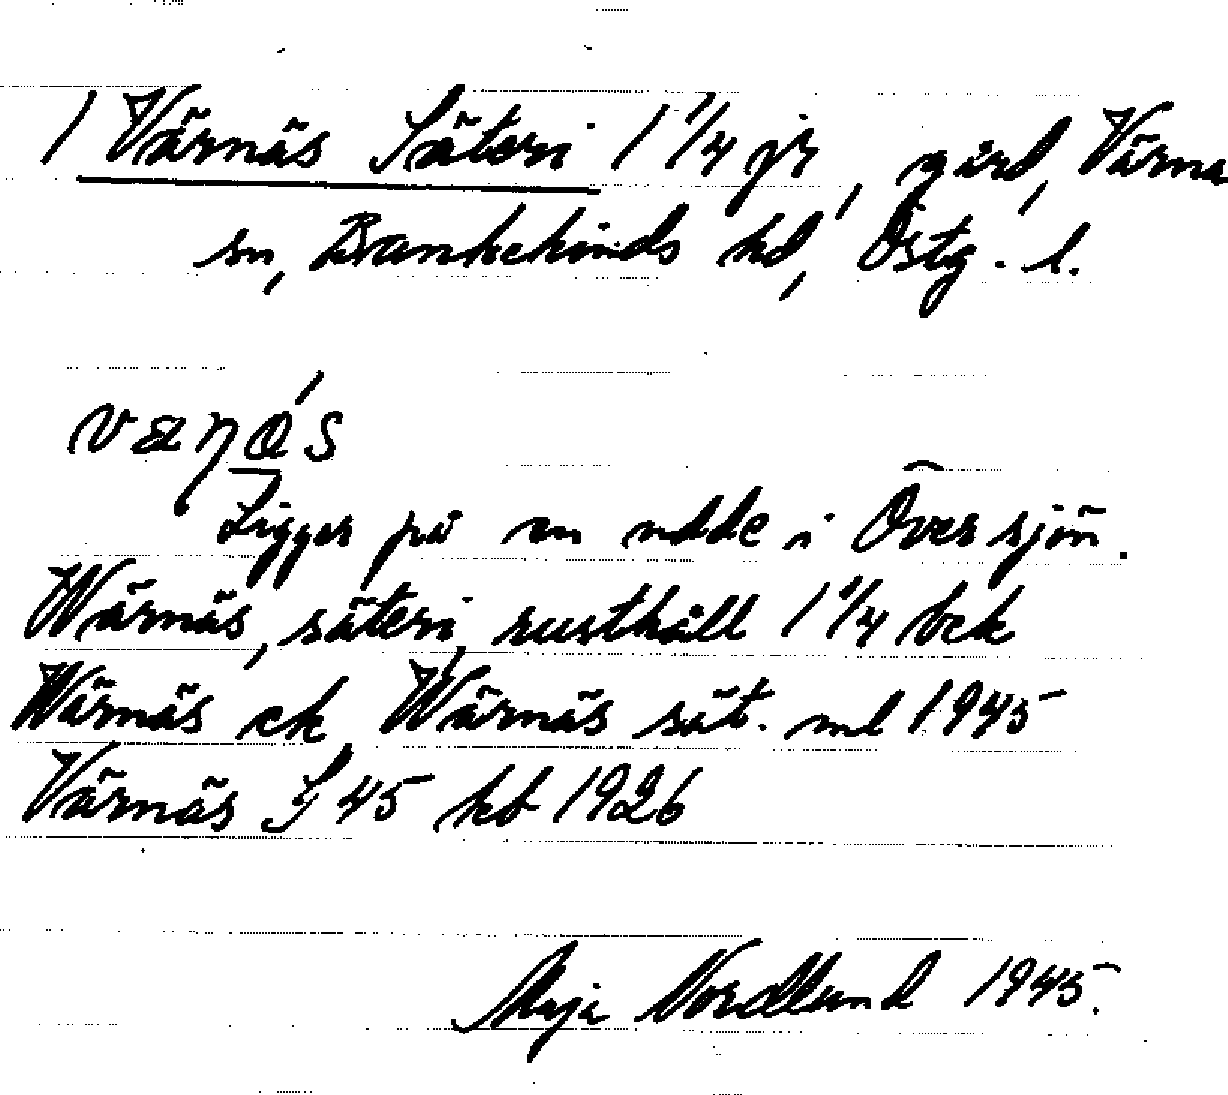 / Värnäs Säteri 1 1/4 jr, gård, Värna
sn, Bankekinds hd, Östg. l.
Ligger på en udde i Översjön.
Wärnäs, säteri, rusthåll 1 1/4 bck
Wärnäs ck, Wärnäs sät. ml 1945
Värnäs J 45 kb 1926
Maja Nordlund 1945.